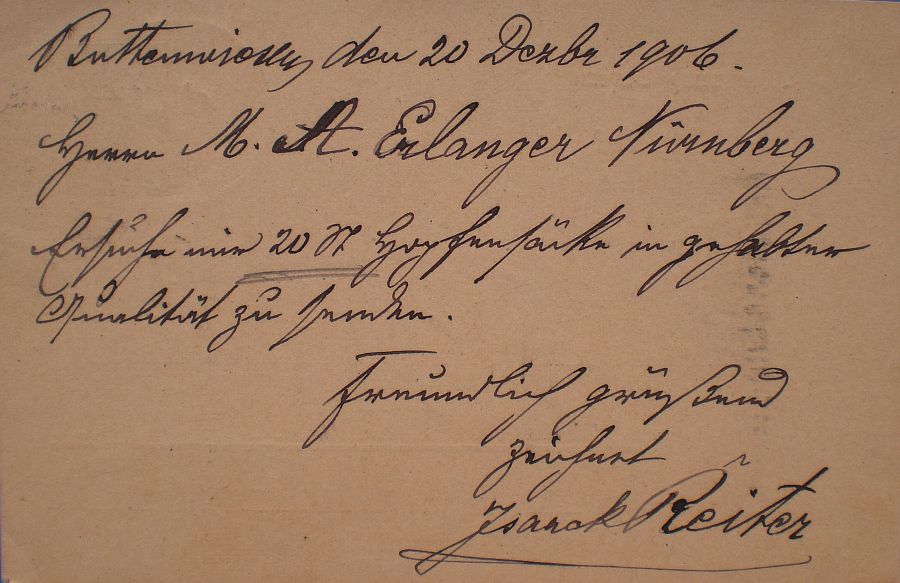 Buttenwiesen, den 20 Dezbr 1906.
Herrn M. A. Erlanger Nürnberg
Ersuche mir 20 St Hopfensäcke in gehabter
Qualität zu senden.
Freundlich grüßend
zeichnet
Isaack Reiter